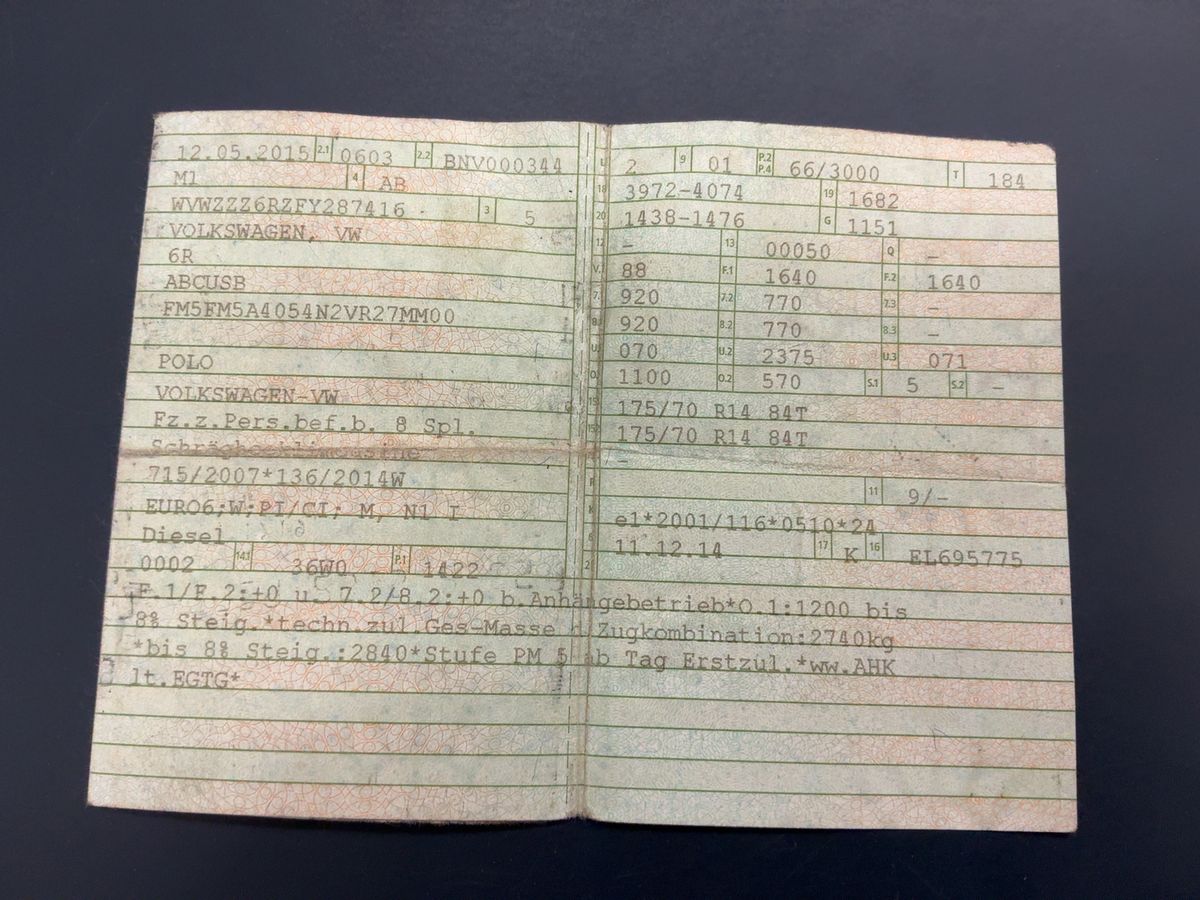 12.05.2015 2.1 0603 2.2 BNV000344
M1 4 AB
WVWZZZ6RZFY287416 3 5
VOLKSWAGEN, VW
6R
ABCUSB
FM5FM5A4054N2VR27MM00
POLO
VOLKSWAGEN-VW
Fz.z.Pers.bef.b. 8 Spl.
Schräghecklimousine
715/2007*136/2014W
EURO6;W:PI/CI; M, N1 I
Diesel
0002 14.1 36W0 P.1 1422
2 9 01 P.2 P.4 66/3000 T 184
18 3972-4074 19 1682
20 1438-1476 G 1151
12 - 13 00050 Q -
88 F.1 1640 F.2 1640
920 7.2 770 7.3 -
920 8.2 770 8.3 -
070 U.2 2375 U.3 071
1100 O.2 570 S.1 5 S.2 -
175/70 R14 84T
175/70 R14 84T
-
11 9/-
e1*2001/116*0510*24
11.12.14 17 K 16 EL695775
F.1/F.2:+0 u. 7.2/8.2:+0 b.Anhängebetrieb*O.1:1200 bis
8% Steig.*techn.zul.Ges-Masse d.Zugkombination:2740kg
*bis 8% Steig.:2840*Stufe PM 5 ab Tag Erstzul.*ww.AHK
lt.EGTG*